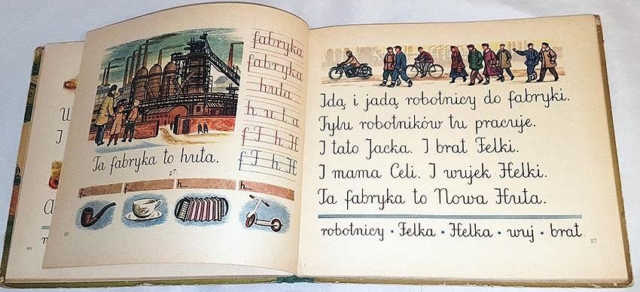 fabryka
fabryka
huta
huta
f F h H
f F h H
Ta fabryka to huta.
f
f
h
h
Idą i jadą robotnicy do fabryki.
Tylu robotników tu pracuje.
I tato Jacka. I brat Felki.
I mama Celi. I wujek Helki.
Ta fabryka to Nowa Huta.
robotnicy • Felka • Helka • wuj • brat
57